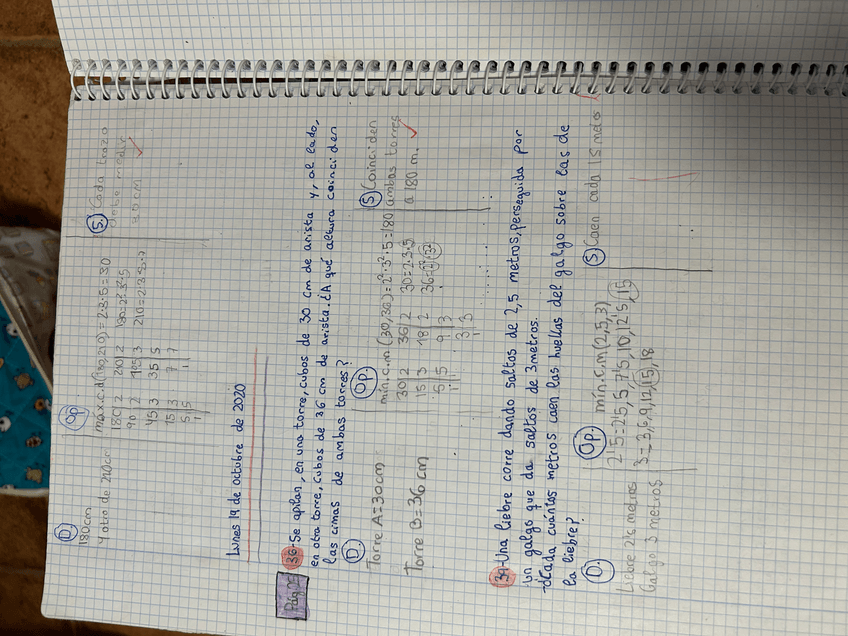 D
180cm
y otro de 210cm
Op
max.c.d(180,210)=2·3·5=30
180 2 210 2 180=2²·3²·5
90 2 105 3 210=2·3·5·7
45 3 35 5
15 3 7 7
5 5 1
1
S. Cada trozo
debe medir
30 cm
Lunes 19 de octubre de 2020
36-Se apilan, en una torre, cubos de 30 cm de arista y, al lado,
en otra torre, cubos de 36 cm de arista. ¿A qué altura coinciden
las cimas de ambas torres?
D.
Torre A=30cm
Torre B=36cm
Op.
mín.c.m(30,36)=2²·3²·5=180
30 2 36 2 30=2·3·5
15 3 18 2 36=2²·3²
5 5 9 3
1 3 3
1
S Coinciden
ambas torres
a 180 m.
39-Una liebre corre dando saltos de 2,5 metros, perseguida por
un galgo que da saltos de 3 metros.
¿Cada cuántos metros caen las huellas del galgo sobre las de
la liebre?
D.
Liebre 2'5 metros
Galgo 3 metros
Op.
mín.c.m(2,5,3)
2'5=2'5,5,7'5,10,12'5,15
3=3,6,9,12,15,18
S Caen cada 15 metros